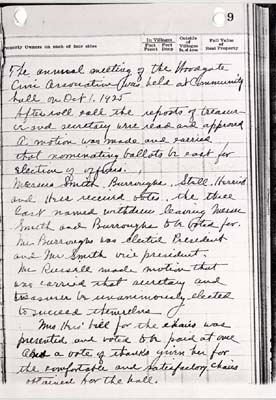 9
Property Owners on each of four sides
In Villages
Feet Front
Feet Deep
Outside of Villages
No. of Acres
Full Value of Real Property
The annual meeting of the Woodgate
Civic Association was held at Community
hall on Oct 1, 1925
After roll call the reports of treasur-
er and secretary were read and approved
A motion was made and carried
that nominating ballots be cast for
election of officers.
Messrs Smith Burroughs, Still,
and received votes. the three
last named withdrew leaving Messrs
Smith and Burroughs to be voted for.
Mr Burroughs was elected President
and Mr Smith vice president.
Mr Russell made motion that
was carried that secretary and
treasurer be unanimously elected
to succeed themselves
Mrs bill for the chairs was
presented and voted to be paid at once
and a vote of thanks given her for
the comfortable and satisfactory chairs
obtained for the hall.